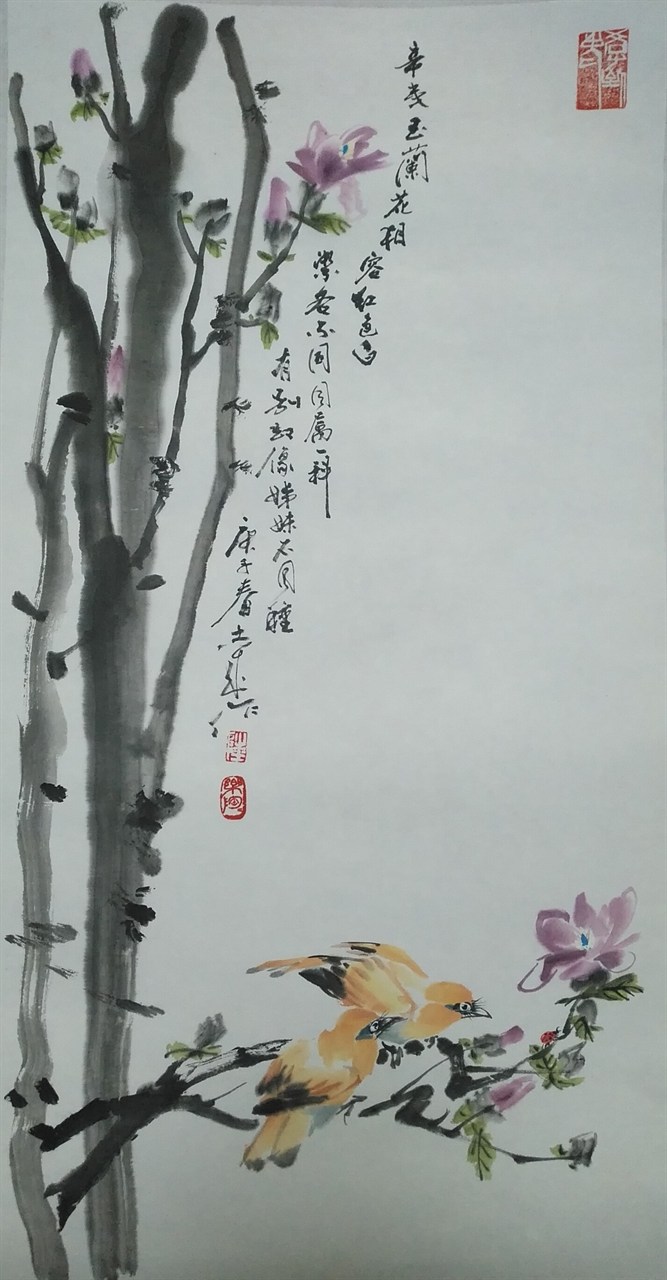 辛夷玉蘭花相
容红色白
紫各不同同属一科
有别却像姊妹不同種
庚子春